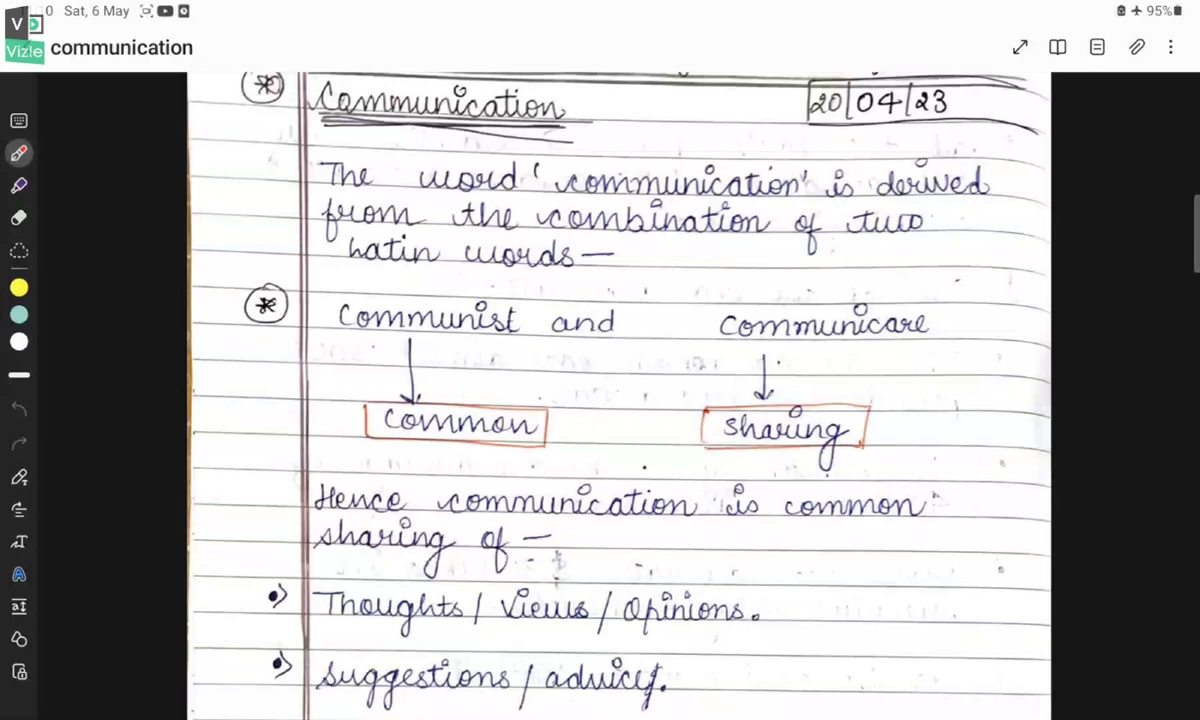 11:10 Sat, 6 May 95%
V
Vizle communication
Communication 20/04/23
The word 'communication' is derived
from the combination of two
Latin words —
Communist and Communicare
Common Sharing
Hence communication is common
sharing of —
Thoughts / Views / Opinions.
Suggestions /